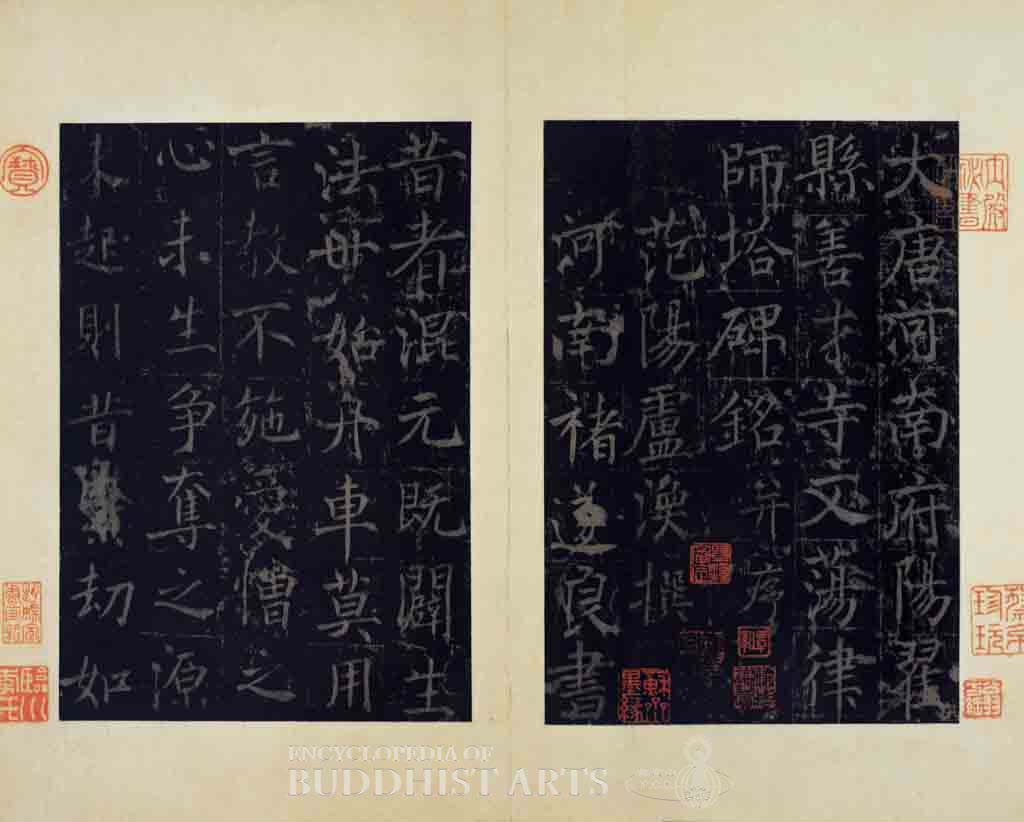 大唐河南府陽翟
縣善才寺文蕩律
師塔碑銘并序
范陽盧渙撰
河南褚遂良書
昔者混元既闢生
法毋始舟車莫用
言教不施愛憎之
心未生爭奪之源
未起則昔劫如
ENCYCLOPEDIA OF
BUDDHIST ARTS